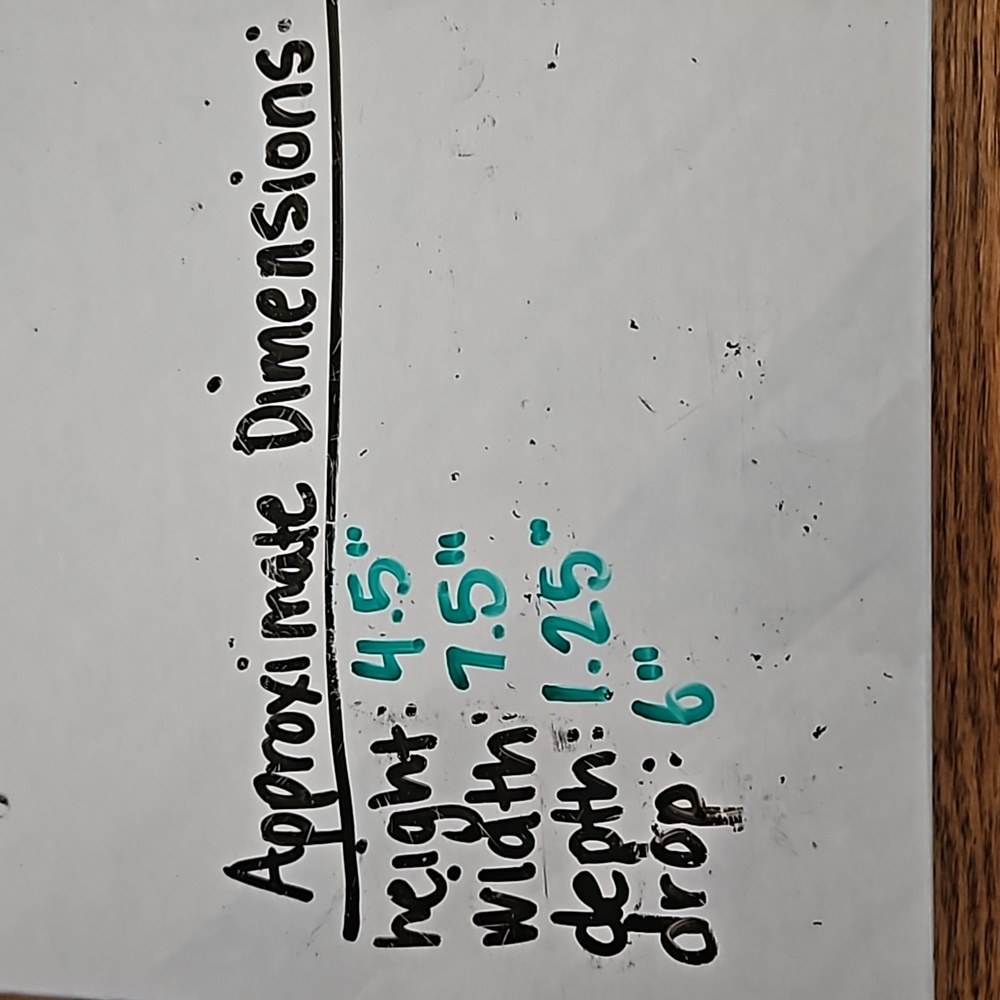 Approximate Dimensions:
height: 4.5"
width: 7.5"
depth: 1.25"
drop: 6"